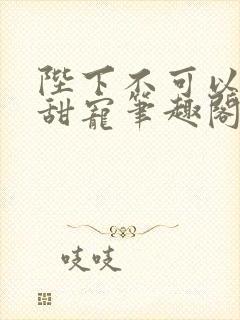 陛下不可以
甜寵筆趣閣
吱吱